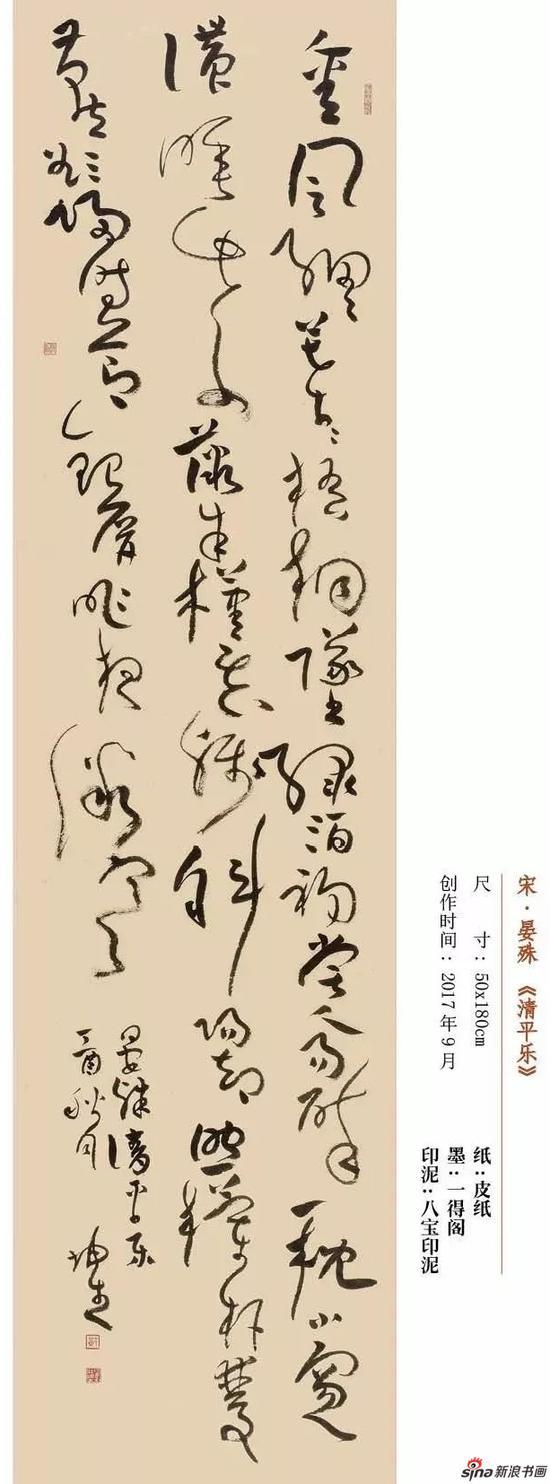 金風細々葉々梧桐墜綠酒初嘗人易醉一枕小窗
濃睡紫薇朱槿花殘斜陽却照欄杆雙
燕欲歸時節銀屏昨夜微寒
晏殊清平乐
丁酉秋月
宋·晏殊《清平乐》
尺 寸：50x180cm
创作时间：2017年9月
纸：皮纸
墨：一得阁
印泥：八宝印泥
sina新浪书画